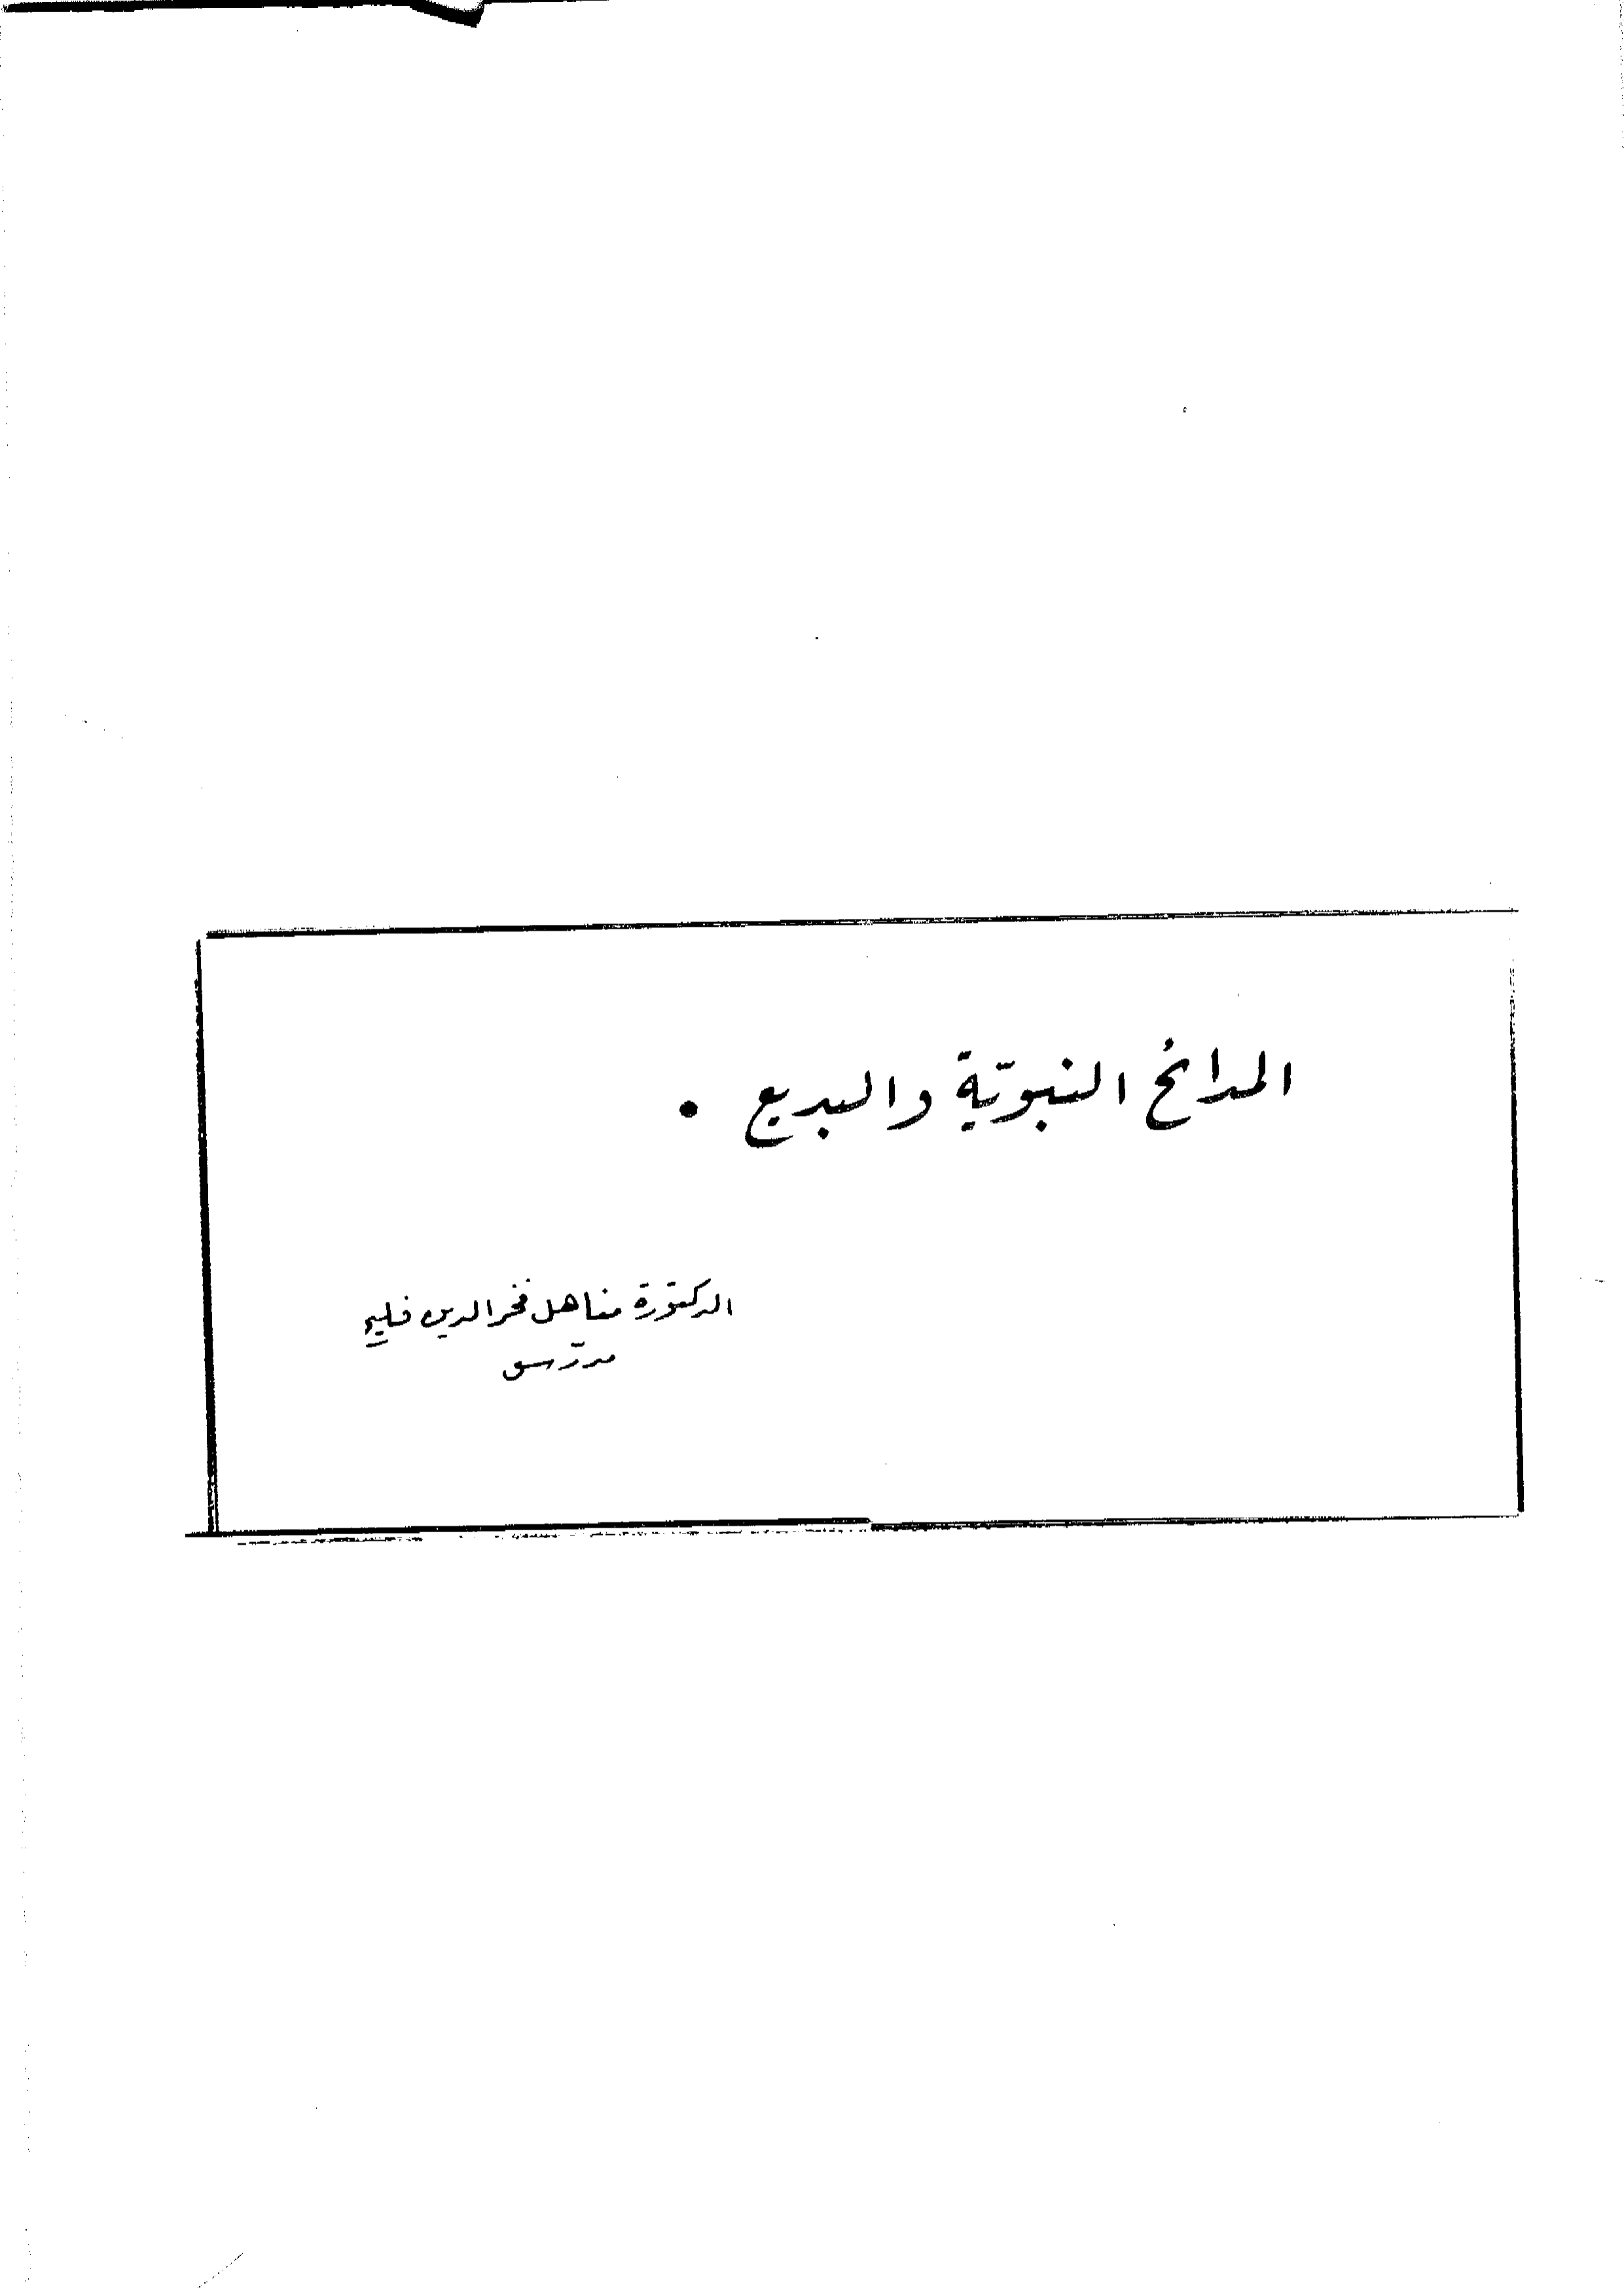 المدائح النبويّة والبديع .
الدكتورة مناهل فخر الدين فليح
مدرّس